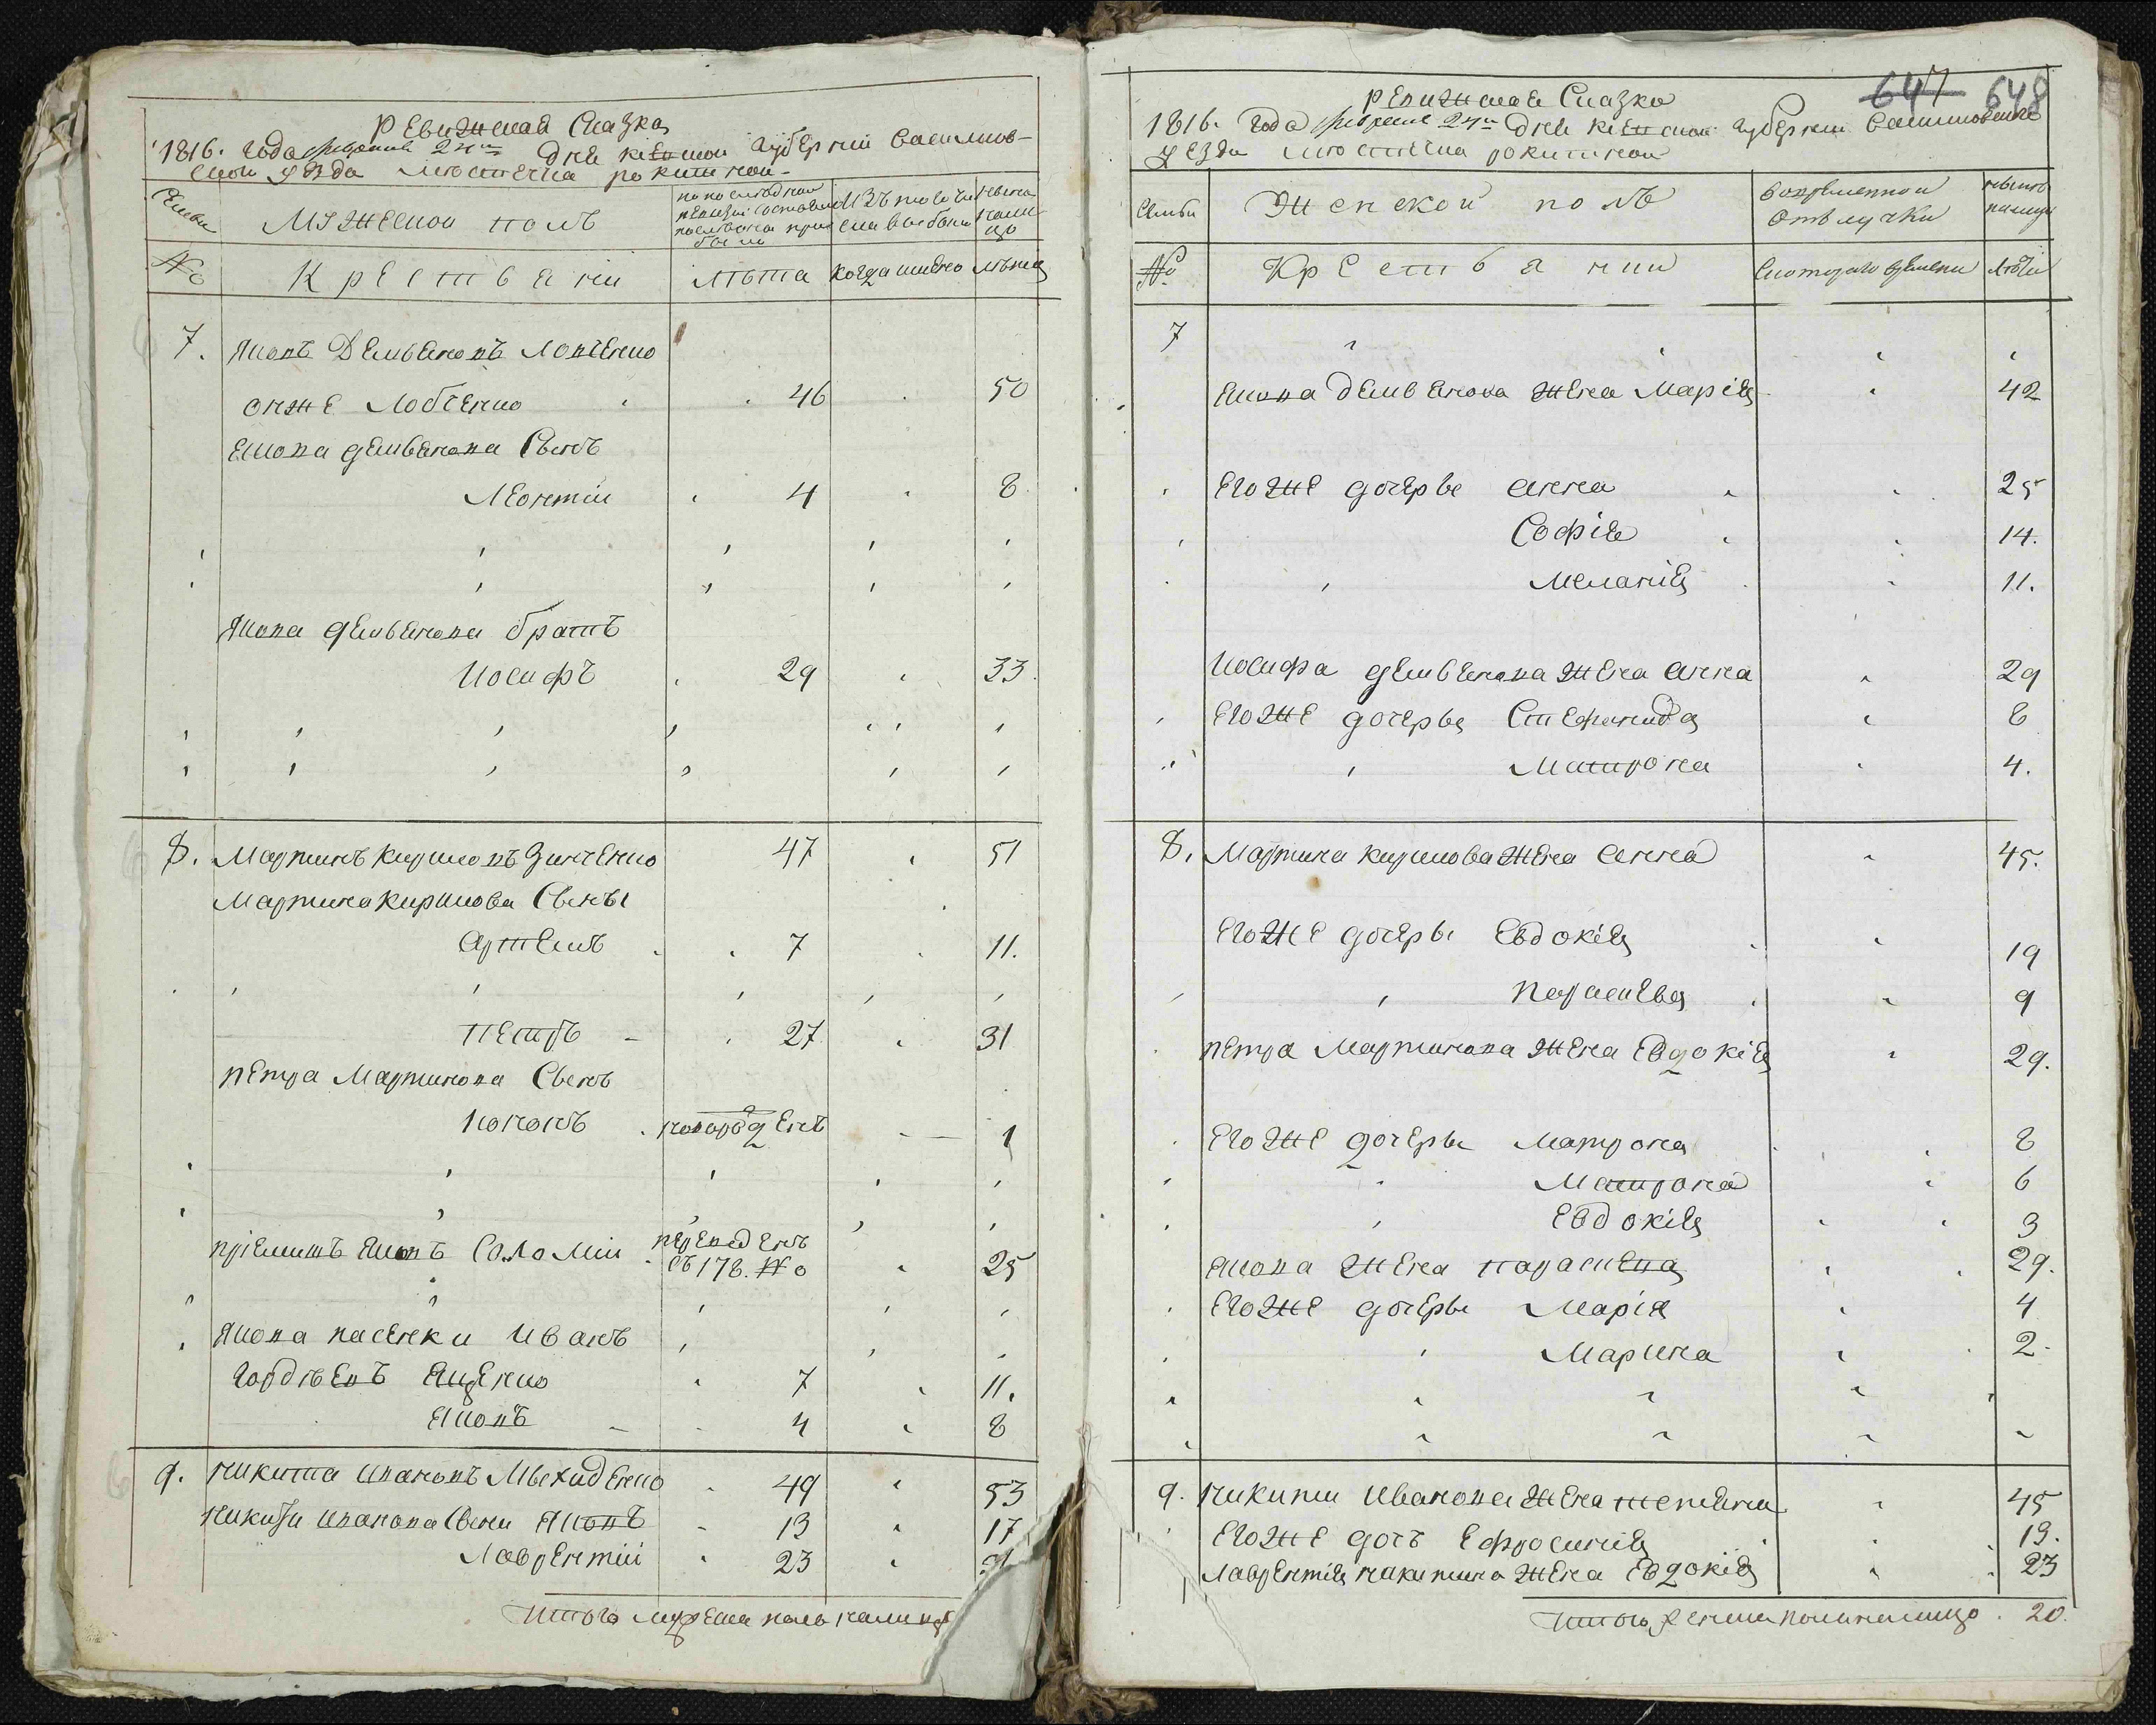 Ревижская Сказка
1816. Года февраля 24го дня киевской губернии Василков-
ской уезда местечка рокитной
Семьи
Мужеской полъ
по последней ревизии состояло и после оной прибыло
Изъ того числа выбыло
ныне налицо
№
Крестьяни
лета
когда имянно
лета
7. Яковъ Демьяновъ Лопченко
онже Лобченко 46 50
Якова демьянова Сынъ
Леонтий 4 8
Якова демьянова братъ
Иосифъ 29 33
8. Мартинъ кириловъ Зинченко 47 51
Мартина кирилова Сыны
Артемъ 7 11.
Петръ 27 31
петра Мартинова Сынъ
Кононъ новорожденъ 1
приемишъ Яковъ Соломий переведенъ
съ 178. № 25
Якова пасенки Иванъ
Гордеевъ Яценко 7 11.
Яковъ 4 8
9. никита ивановъ Мыхиденко 49 53
никиты иванова Сыны Яковъ 13 17
Лаврентий 23
Итого мужеска полу налицо
647 648
Ревижская Сказка
1816. Года февраля 24го дня киевской губернии Василковской
уезда местечка рокитной
Семьи
Женской полъ
во временной отлучки
ныне налицо
№
Крестьянии
с которого времени
Лета
7
Якова демьянова жена Мария 42
Его же дочерье анна 25
София 14.
Мелания 11.
Иосифа демьянова жена анна 29
Его же дочерья Стефанида 8
Матрона 4.
8. Мартина кирилова жена анна 45.
Его же дочеры Евдокия 19
Параскева 9
петра Мартинова жена Евдокия 29.
Его же дочеры Матрона 8
Матрона 6
Евдокия 3
Якова жена параскева 29.
Его же дочеры Мария 4
Марина 2.
9. никиты Иванова жена тетяна 45
Его же дочъ Ефросиния 19.
Лаврентия никитина жена Евдокия 23
Итого женска полу налицо 20.